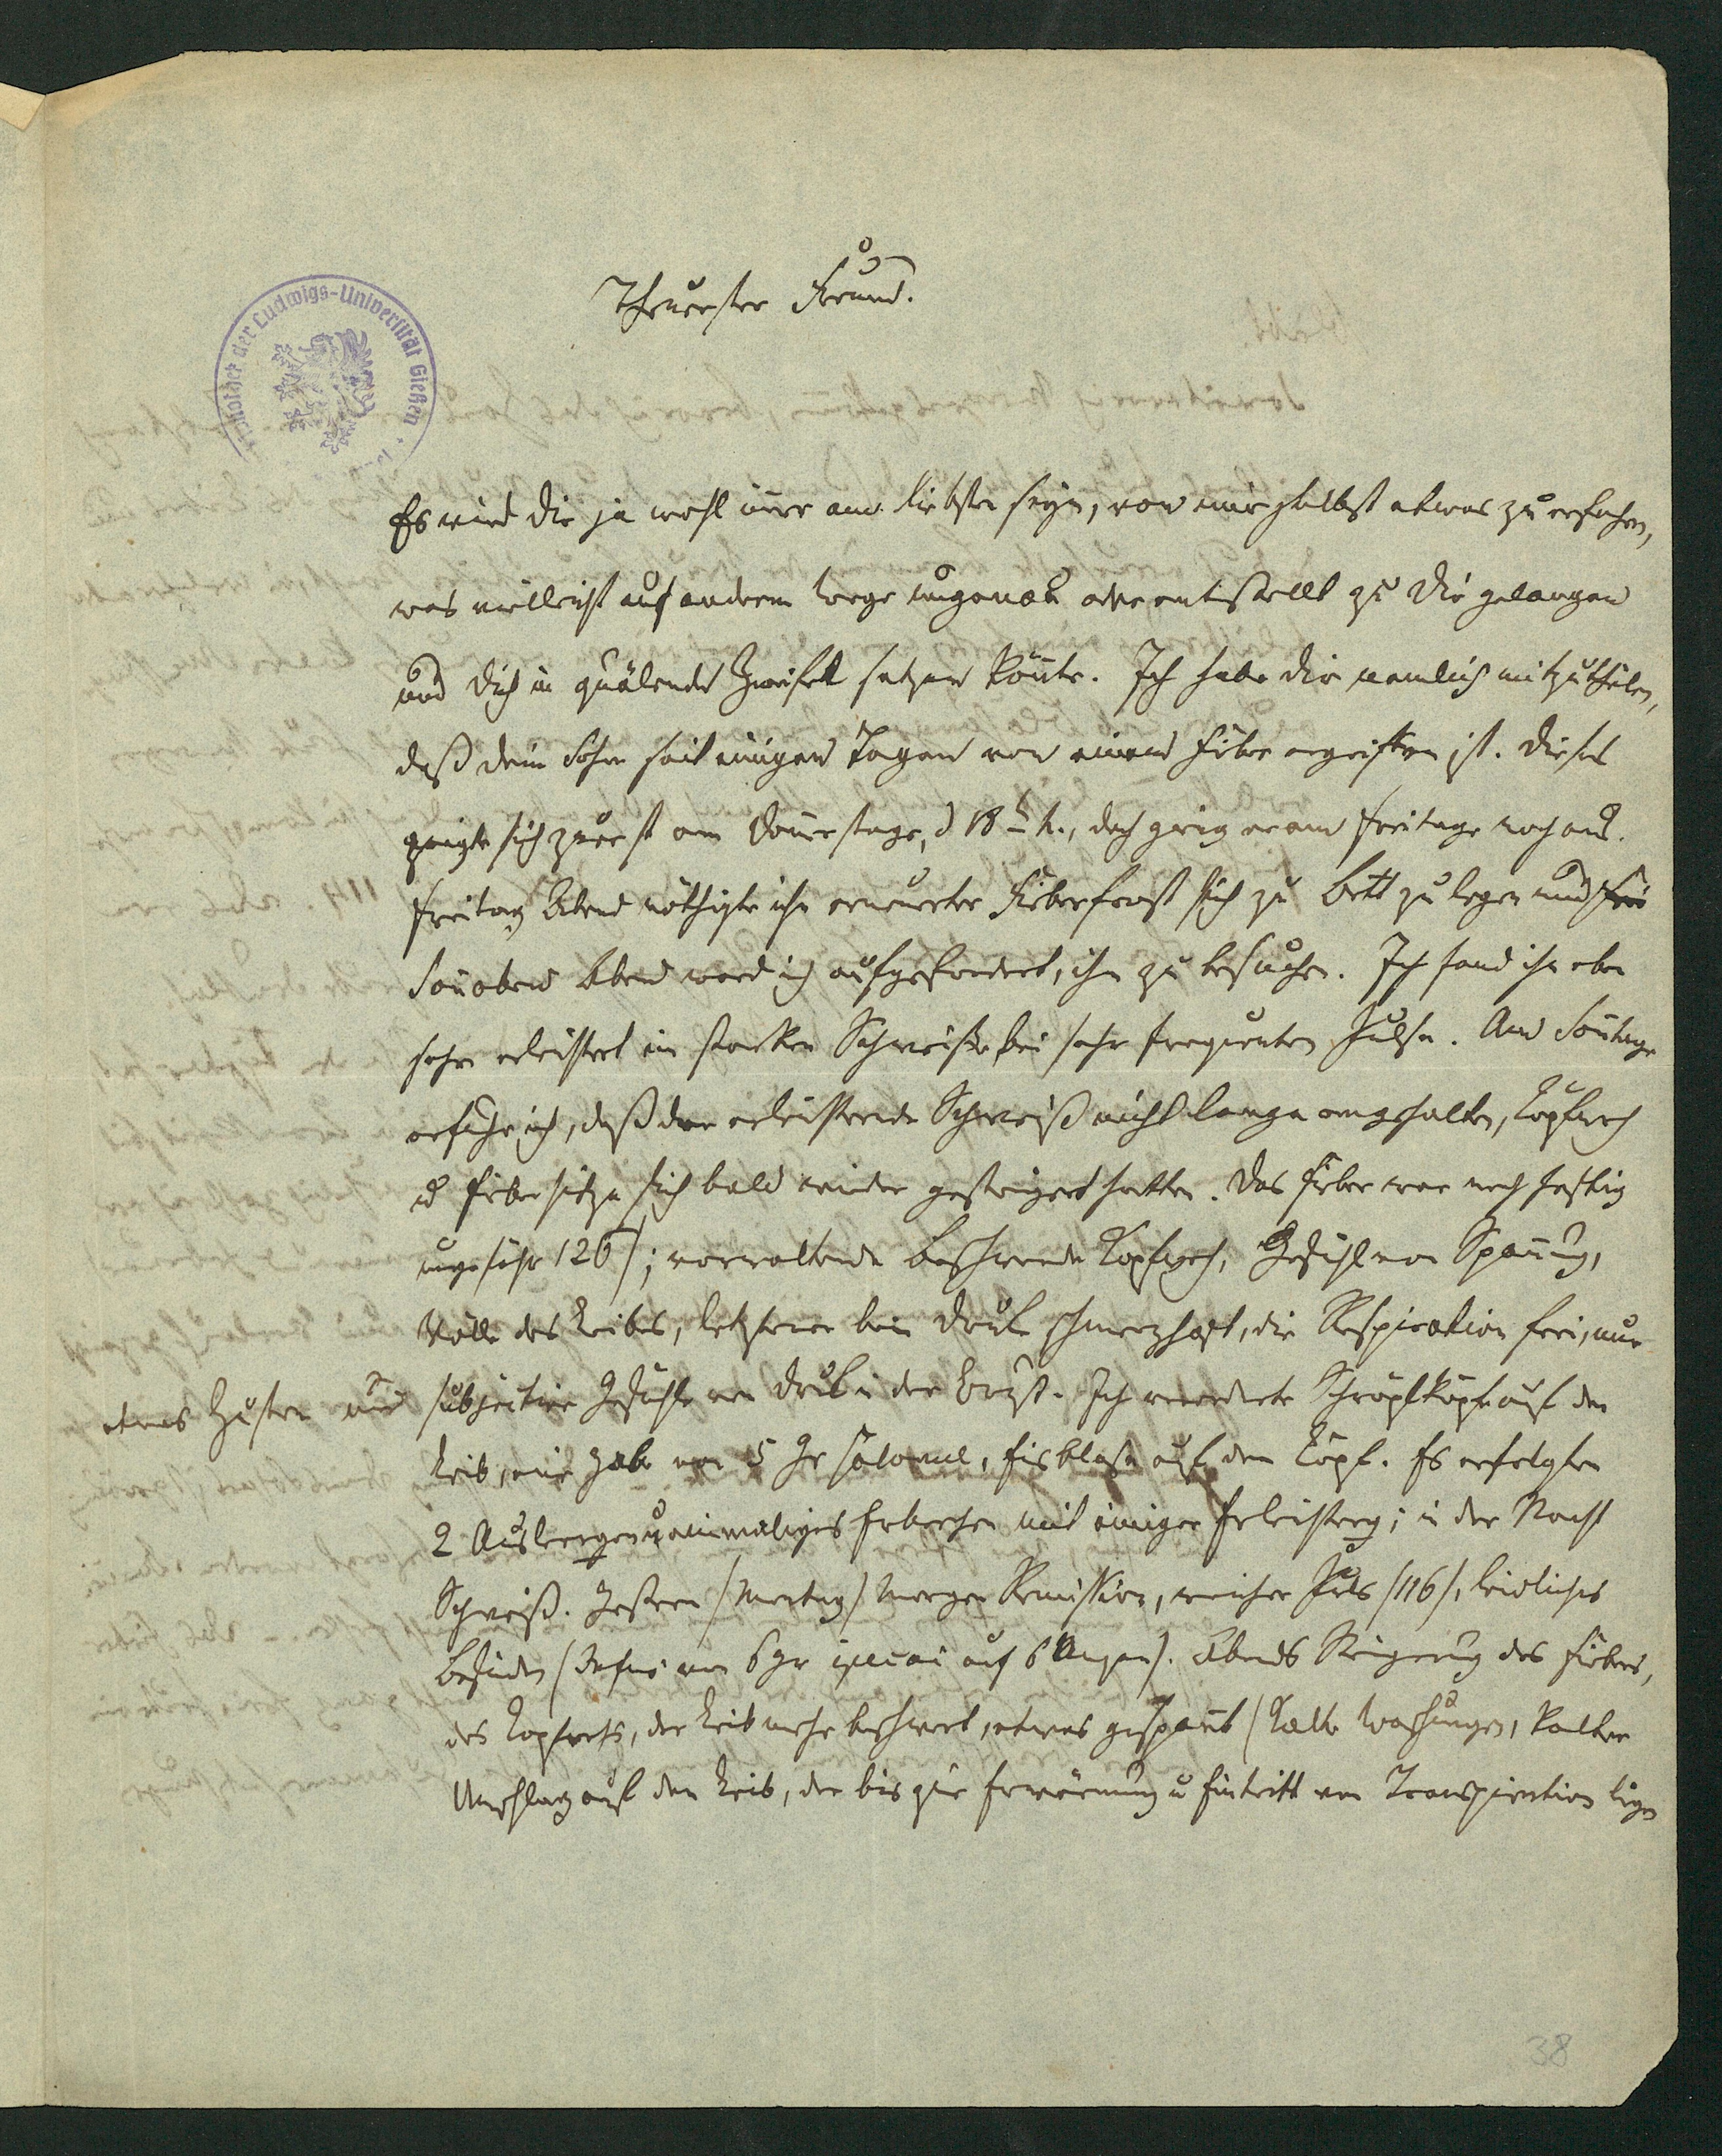 Theuerster Freund.
Bibliothek der Ludwigs-Universität Gießen
Es wird Dir ja wohl immer am liebsten seyn, von mir selbst etwas zu erfahren,
was vielleicht auf anderem Wege ungenau oder entstellt zu Dir gelangen
und Dich in quälende Zweifel setzen könnte. Ich habe Dir nemlich mitzutheilen,
daß Dein Sohn seit einigen Tagen von einem Fieber ergriffen ist. Dieses
zeigte sich zuerst am Donnerstage, d 18t h., doch ging er am Freitage noch aus.
Freitag Abend nöthigte ihn erneuerter Fieberfrost sich zu Bett zu legen und
Sonabend Abend ward ich aufgefordert, ihn zu besuchen. Ich fand ihn eben
sehr erleichtert im starken Schweiße bei sehr frequentem Pulse. Am Sontage
erfuhr ich, daß der erleichternde Schweiß nicht lange angehalten, Kopfweh
u Fieberhitze sich bald wieder gesteigert hatten. Das Fieber war noch heftig
ungefähr 120/; vorwaltende Beschwerde Kopfweh, Gefühl von Spannung,
Völle des Leibes, letzterer beim Druck schmerzhaft, die Respiration frei, nur
etwas Husten und
subjective Gefühle von Druck in der Brust. Ich verordnete Schröpfköpfe auf den
Leib, eine Gabe von 5 Gr Calomel, Eisblase auf den Kopf. Es erfolgten
2 Ausleerungen u einmaliges Erbrechen mit einiger Erleichterung; in der Nacht
Schweiß. Gestern /Montag/ Morgen Remission, weicher Puls /116/, leidliches
Befinden (Infus von 6 gr ipecac auf 6 Unzen). Abends Steigerung des Fiebers,
des Kopfwehs, der Leib mehr beschwert, etwas gespannt (Kalte Waschungen, kalter
Umschlag auf den Leib, der bis zur Erwärmung u Eintritt von Transpiration liegen
38